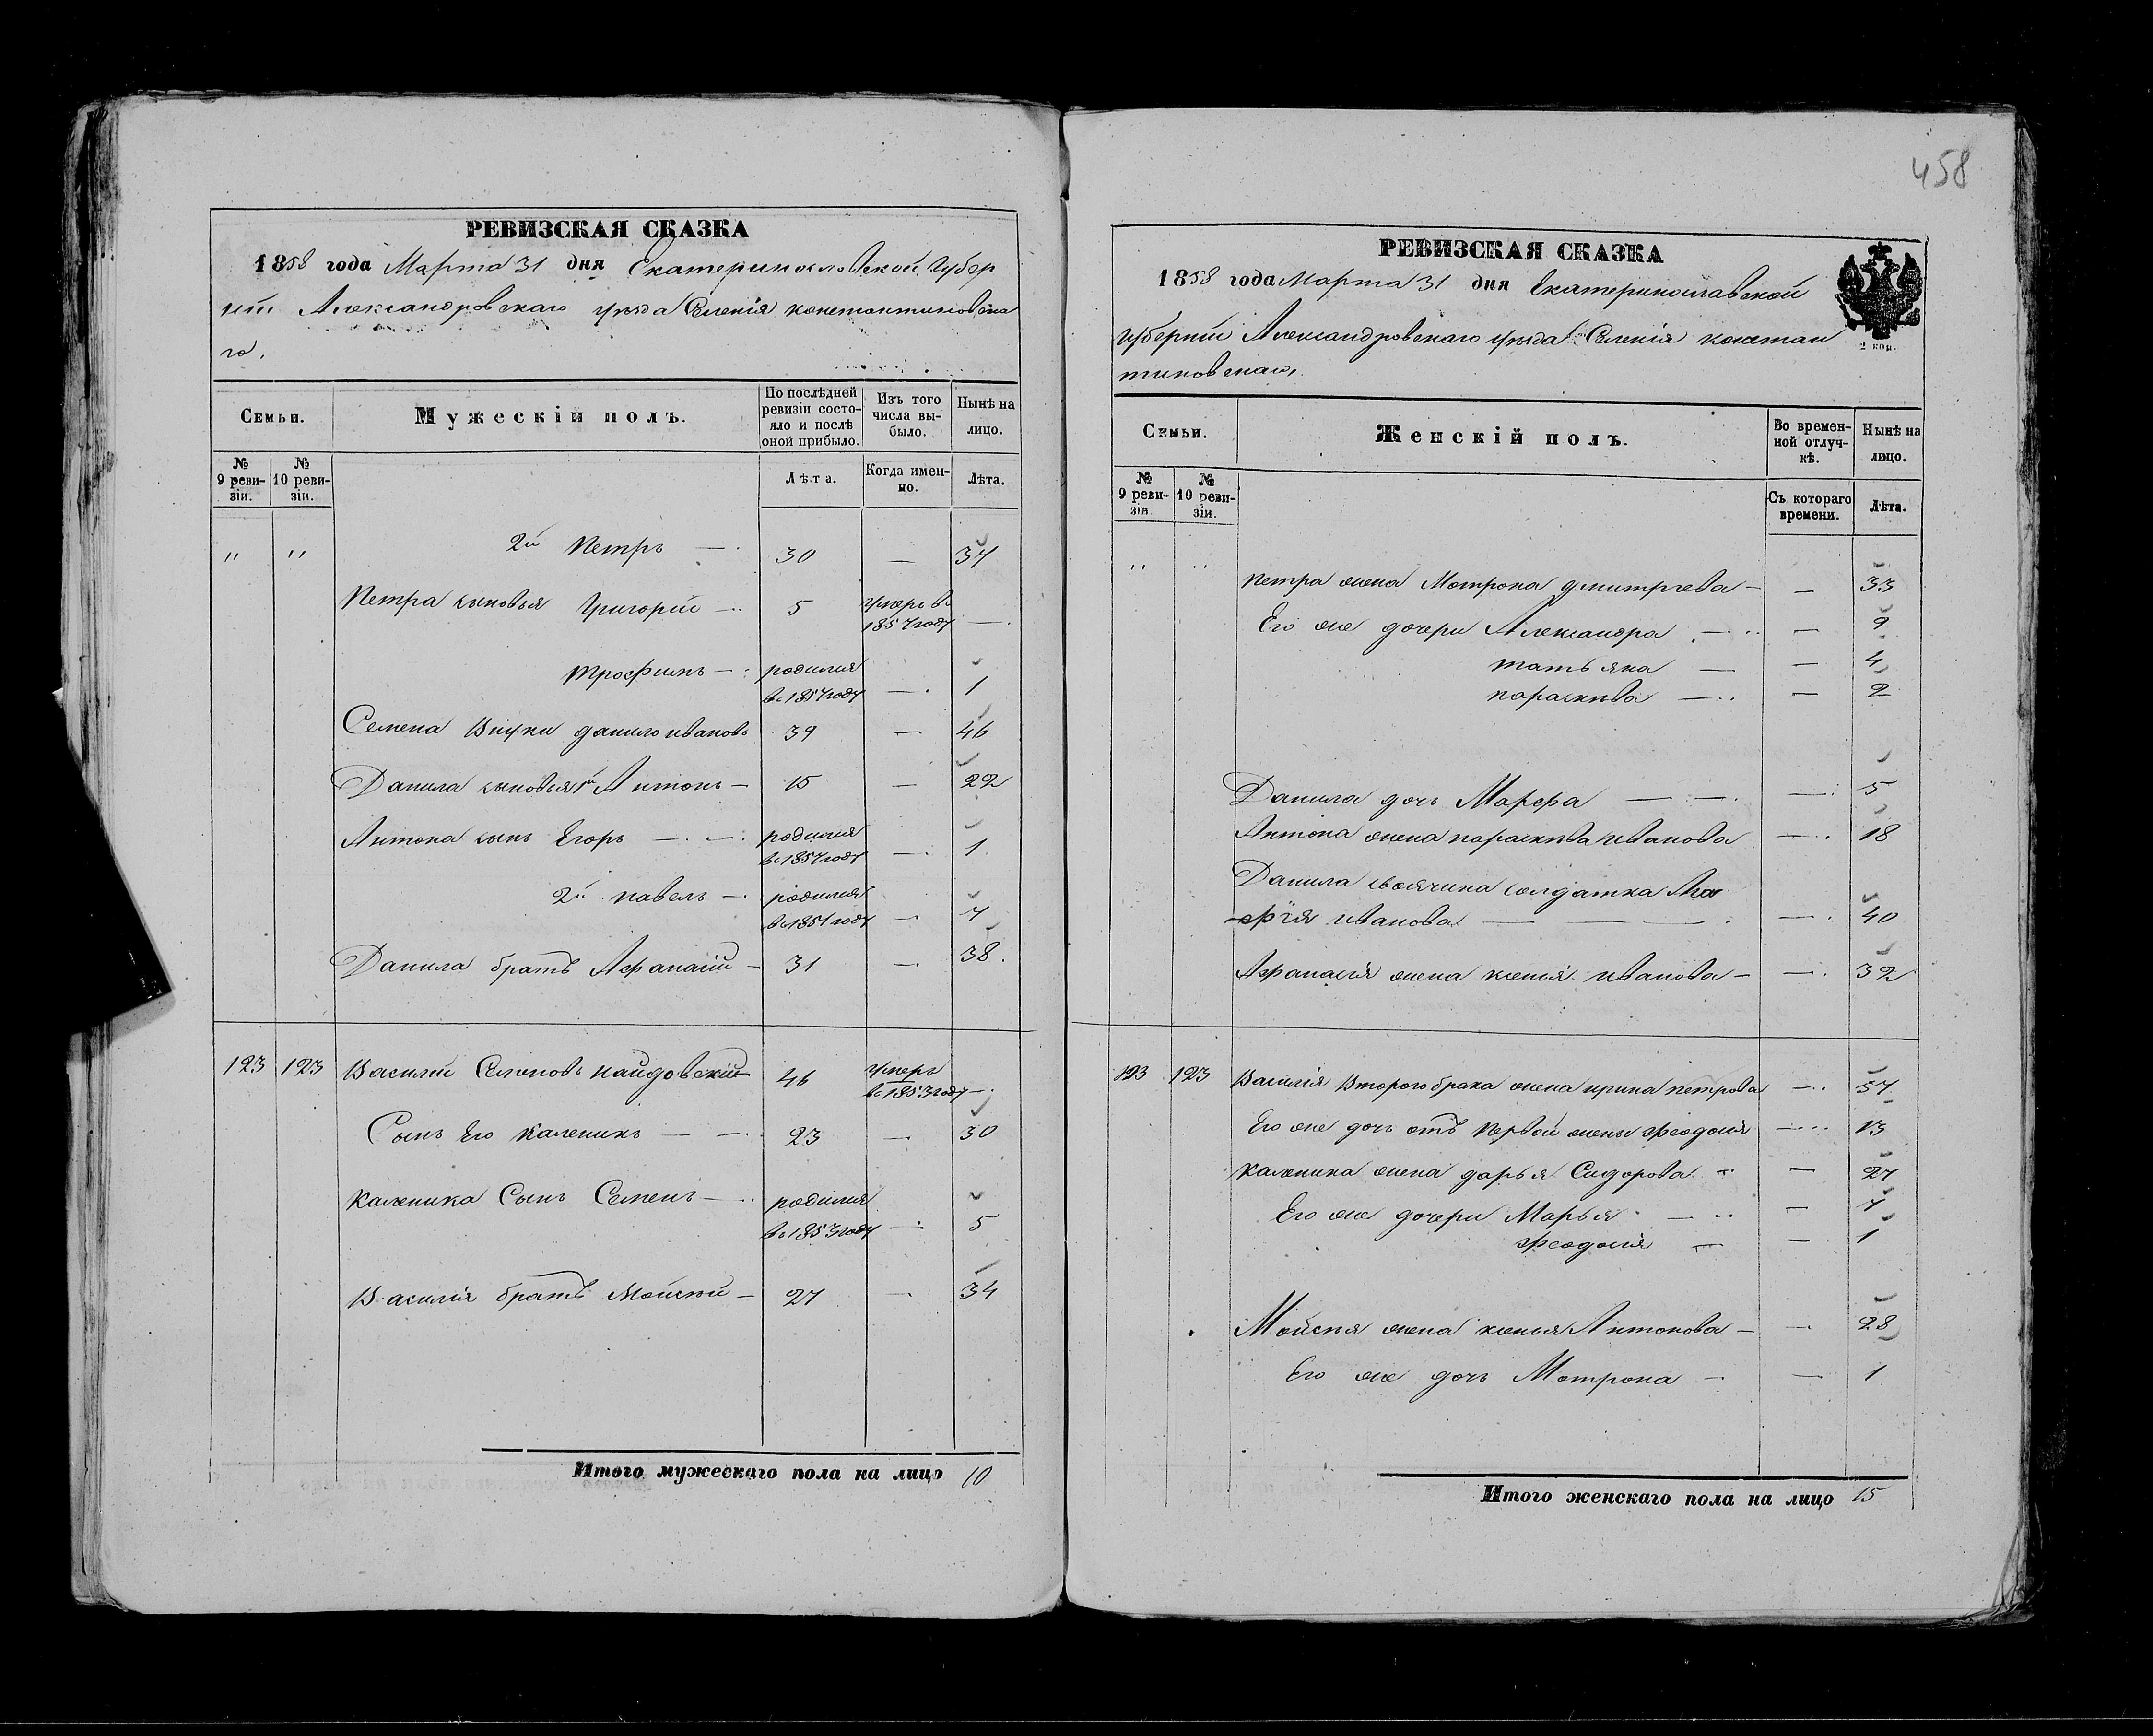 458
РЕВИЗСКАЯ СКАЗКА
1858 года Марта 31 дня Екатеринославской Губер
ніи Александровскаго уѣзда Селенія константиновска
го.
Семьи.
Мужескій полъ.
По послѣдней ревизіи состояло и послѣ оной прибыло.
Изъ того числа выбыло.
Нынѣ на лицо.
№ 9 ревизіи.
№ 10 ревизіи.
Лѣта.
Когда именно.
Лѣта.
" " 2й Петръ — 30 — 37
Петра сыновья Григорій — 5 умеръ въ 1857 году —
Трофимъ — родился въ 1857 году — 1
Семена Внуки данило ивановъ 39 — 46
Данила сыновья 1й Антонъ — 15 — 22
Антона сынъ Егоръ — родился въ 1857 году — 1
2й павелъ — родился въ 1851 году — 7
Данила братъ Афанасій — 31 — 38
123 123 Василій Семеновъ найдовскій 46 умеръ въ 1853 году —
Сынъ Его Каленикъ — 23 — 30
Каленика Сынъ Семенъ — родился въ 1853 году — 5
Василія братъ Мойсей — 27 — 34
Итого мужескаго пола на лицо 10
РЕВИЗСКАЯ СКАЗКА
1858 года Марта 31 дня Екатеринославской
губерніи Александровскаго уѣзда Селенія констан
тиновскаго,
2 коп.
Семьи.
Женскій полъ.
Во временной отлучкѣ.
Нынѣ на лицо.
№ 9 ревизіи
№ 10 ревизіи.
Съ котораго времени.
Лѣта.
" " петра жена Мотрона дмитрiева — — 33
Его же дочери Александра — — 9
татьяна — — 4
параскева — — 2
Данила дочь Марфа — — 5
Антона жена параскева иванова — 18
Данила своячина солдатка
иванова — — 40
Афанасія жена ксенія иванова — — 32
123 123 Василія второго брака жена ирина петрова — 57
Его же дочь отъ первой жены феодосія — 13
каленика жена дарья Сидорова — — 27
Его же дочери Марья — — 7
феодосія — — 1
Мойсея жена ксенья Антонова — — 28
Его же дочь Мотрона — — 1
Итого женскаго пола на лицо 15